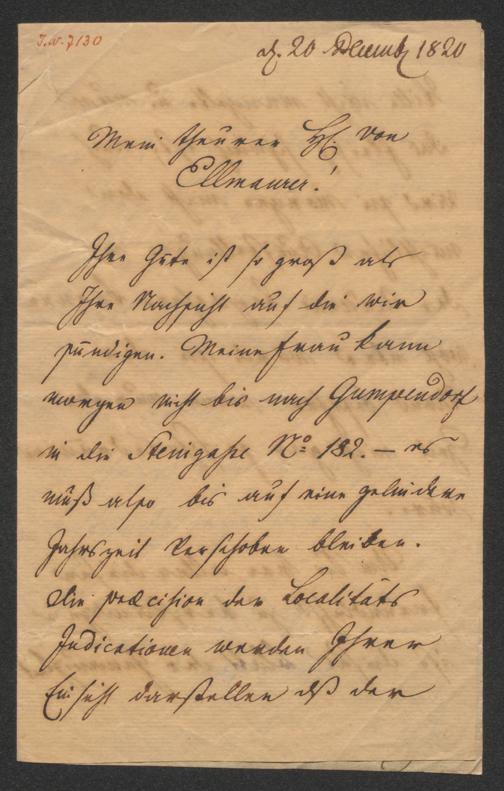 I.N. 7130
d. 20 Decemb 1820
Mein theurer H. von
Ellmaurer!
Ihre Güte ist so groß als
Ihre Nachsicht auf die wir
sündigen. Meine Frau kann
morgen nicht bis nach Gumpendorf
in die Steingaße No 182. — es
muß also bis auf eine gelindere
Jahrszeit verschoben bleiben.
Die præcision der Localitäts
Indicationen werden Ihrer
Einsicht darstellen dß der